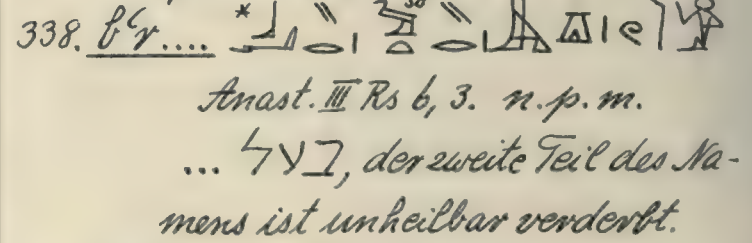 338. bꜥr....
Anast. III Rs 6, 3. n.p.m.
... בעל, der zweite Teil des Na-
mens ist unheilbar verderbt.